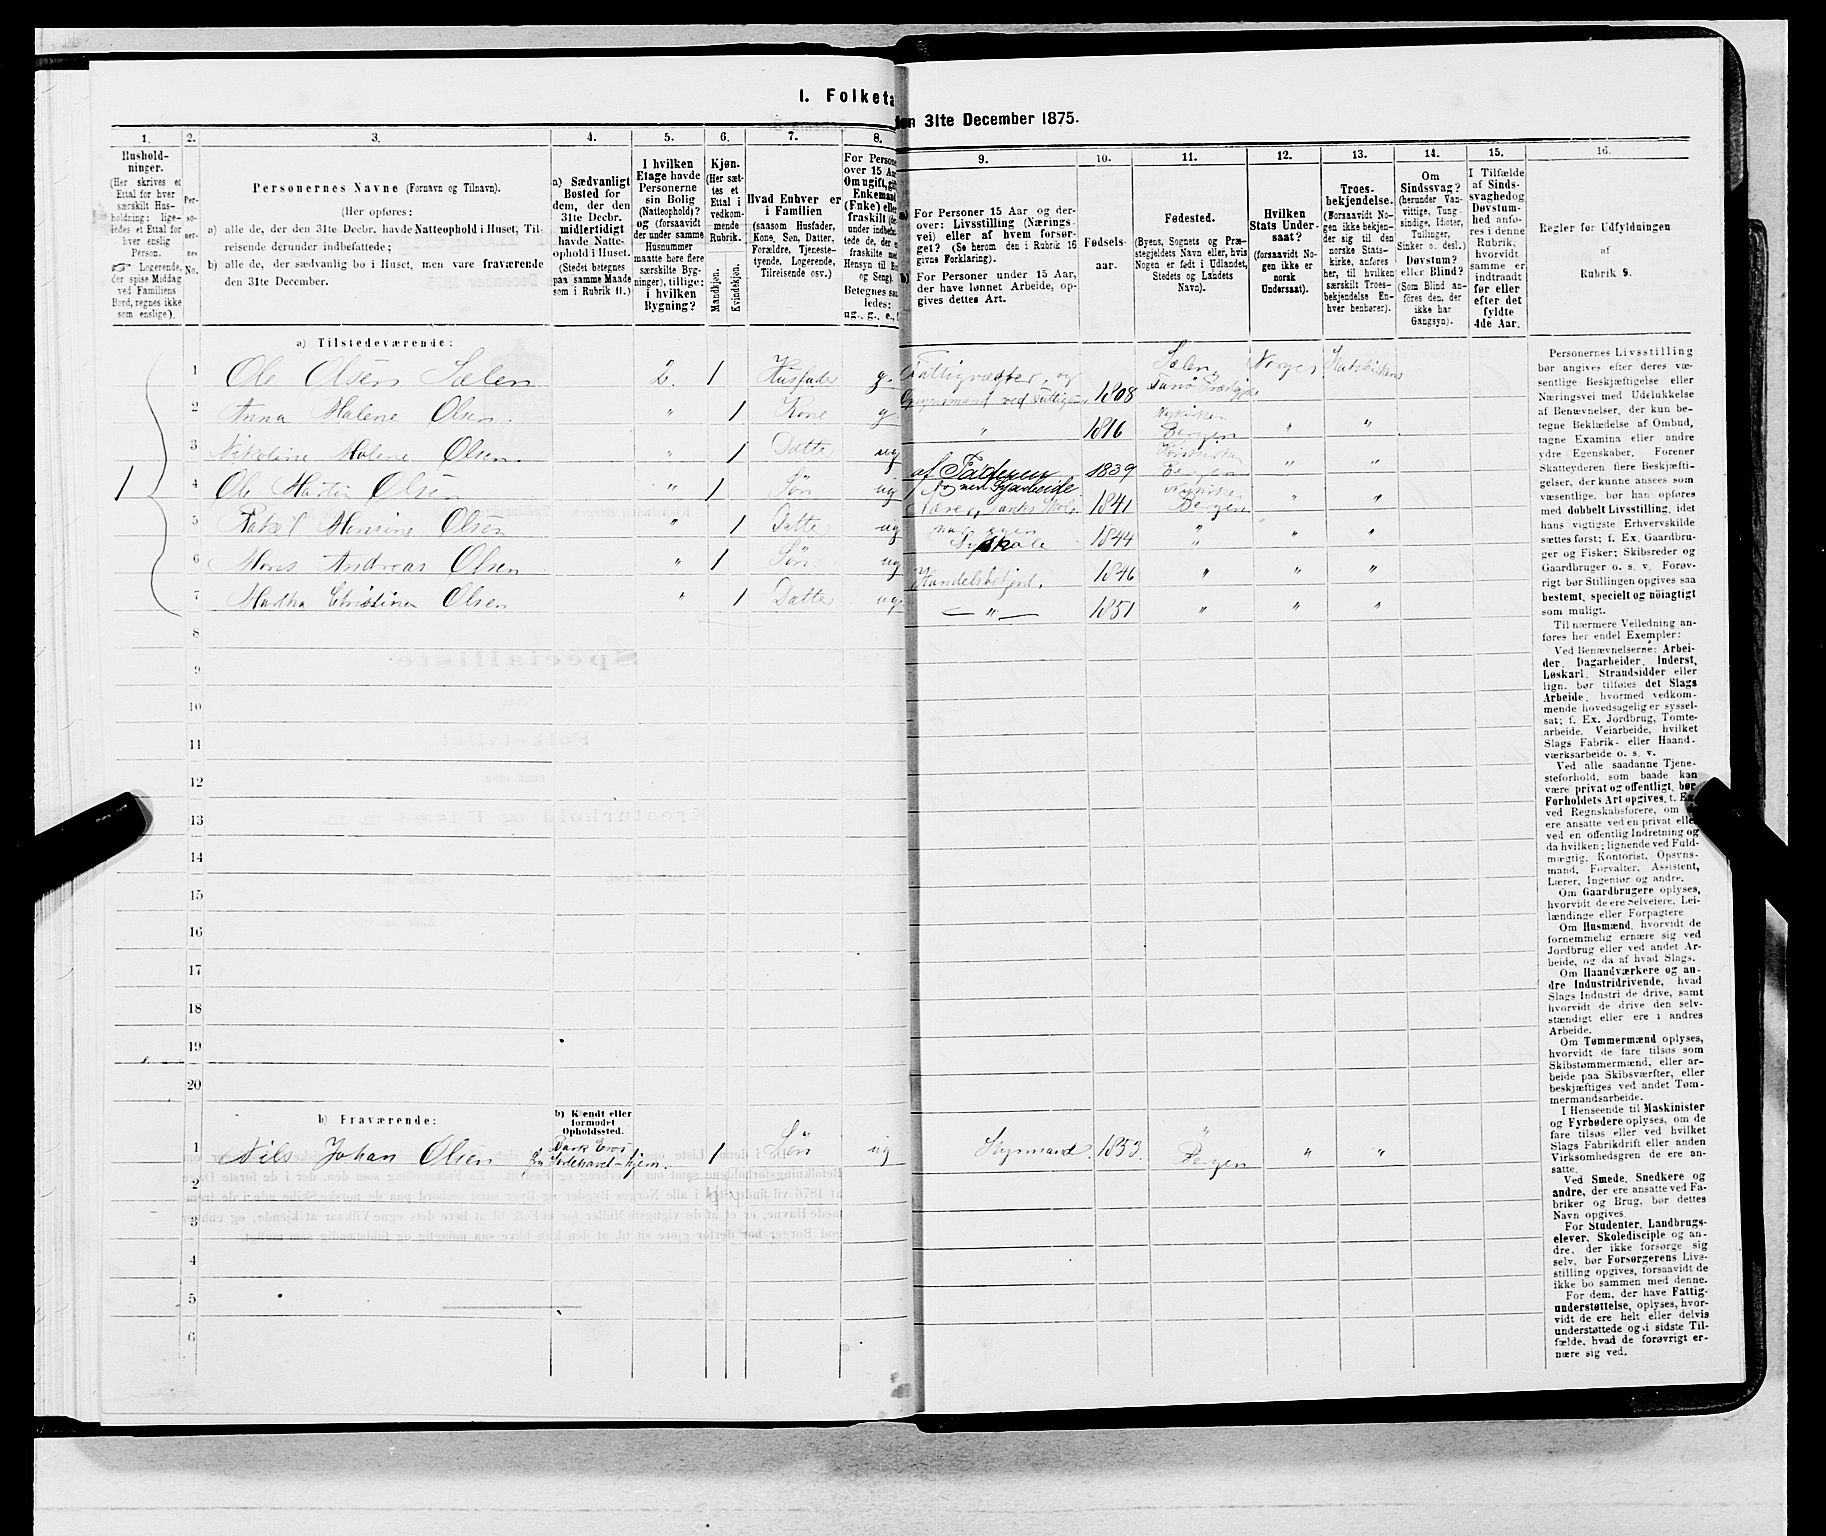 I. Folketa
den 31te December 1875.
1.
2.
3.
4.
5.
6.
7.
8.
9.
10.
11.
12.
13.
14.
15.
16.
Hushold-
ninger.
(Her skrives et
Ettal for hver
særskilt Hus-
holdning; lige-
ledes et Ettal for
hver enslig
Person.
☞ Logerende,
der spise Middag
ved Familiens
Bord, regnes ikke
som enslige).
Per-
so-
ner-
nes
No.
Personernes Navne (Fornavn og Tilnavn).
(Her opføres:
a) alle de, der den 31te Decbr. havde Natteophold i Huset, Til-
reisende derunder indbefattede;
b) alle de, der sædvanlig bo i Huset, men vare fraværende
den 31te December.
a) Sædvanligt
Bosted for
dem, der den
31te Decbr.
midlertidigt
havde Natte-
ophold i Huset.
(Stedet betegnes
paa samme Maade
som i Rubrik 11.)
I hvilken
Etage havde
Personerne
sin Bolig
(Natteophold)?
og (forsaavidt
der under samme
Husnummer
maatte høre flere
særskilte Byg-
ninger), tillige:
i hvilken
Bygning?
Kjøn.
(Her sæt-
tes et
Ettal i
vedkom-
mende
Rubrik.
Mandkjøn.
Kvindekjøn.
Hvad Enhver er
i Familien
(saasom Husfader,
Kone, Søn, Datter,
Forældre, Tjeneste-
tyende, Logerende,
Tilreisende osv.)
For Persone
over 15 Aa
Om ugift, gif
Enkemand
(Enke) elle
fraskilt (de
under indbefat
tede de, der e
fraskilte me
Hensyn til Bo
og Seng).
Betegnes saa
ledes:
ug., g., e., f
a) For Personer 15 Aar og der-
over: Livsstilling (Nærings-
vei) eller af hvem forsør-
get? (Se herom den i Rubrik 16
givne Forklaring).
b) For Personer under 15 Aar,
der have lønnet Arbeide, op-
gives dettes Art.
Fødsels-
aar.
Fødested.
(Byens, Sognets og Præ-
stegjeldets Navn eller, hvis
Nogen er født i Udlandet,
Stedets og Landets
Navn).
Hvilken
Stats Under-
saat?
(forsaavidt No-
gen ikke er
norsk
Undersaat).
Troes-
bekjendelse.
(Forsaavidt No-
gen ikke bekjen-
der sig til den
norske Stats-
kirke, anføres
her, til hvilken
særskilt Troes-
bekjendelse En-
hver henhører).
Om
Sindssvag?
(herunder Van-
vittige, Tung-
sindige, Idioter,
Tullinger,
Sinker o. desl.)
Døvstum?
eller Blind?
(Som Blind an-
føres den, der
ikke har
Gangsyn).
I Tilfælde
af Sinds-
svaghed og
Døvstum-
hed anfø-
res i denne
Rubrik,
hvorvidt
samme er
indtraadt
før eller
efter det
fyldte
4de Aar.
Regler for Udfyldningen
af
Rubrik 9.
a) Tilstedeværende:
1 Ole Olsen Sælen 2. 1 Husfader g. Fattigvægter, og 1808 Sælen Norge Statskirkens
2 Anna Malene Olsen " 1 Kone g " 1816 Nykirken Bergen " "
3 Nikoline Malene Olsen " 1 Datter ug af Faderen 1839 Bergen " "
1
4 Ole Martin Olsen " 1 Søn ug 1841 Nykirken Bergen " "
5 Hensine Olsen " 1 Datter ug 1844 " " "
6 Mons Andreas Olsen " 1 Søn ug Handelsbetjent. 1846 " " "
7 Martha Christine Olsen " 1 Datter ug — " — 1851 " " "
8
9
10
11
12
13
14
15
16
17
18
19
20
b) Fraværende:
b) Kjendt eller
formodet
Opholdssted.
1 Nils Johan Olsen Bark hjem. 1 Søn ug Styrmand 1853 " Bergen " "
2
3
4
5
6
Personernes Livsstilling
bør angives efter deres væ-
sentlige Beskjæftigelse eller
Næringsvei med Udelukkelse
af Benævnelser, der kun be-
tegne Beklædelse af Ombud,
tagne Examina eller andre
ydre Egenskaber. Forener
Skatteyderen flere Beskjæfti-
gelser, der kunne ansees som
væsentlige, bør han opføres
med dobbelt Livsstilling, idet
hans vigtigste Erhvervskilde
sættes først; f. Ex. Gaardbru-
ger og Fisker; Skibsreder og
Gaardbruger o. s. v. Forøv-
rigt bør Stillingen opgives saa
bestemt, specielt og nøiagtigt
som muligt.
Til nærmere Veiledning an-
føres her endel Exempler:
Ved Benævnelserne: Arbei-
der, Dagarbeider, Inderst,
Løskarl, Strandsidder eller
lign. bør tilføies det Slags
Arbeide, hvormed vedkom-
mende hovedsagelig er syssel-
sat; f. Ex. Jordbrug, Tomte-
arbeide, Veiarbeide, hvilket
Slags Fabrik- eller Haand-
værksarbeide o. s. v.
Ved alle saadanne Tjene-
steforhold, som baade kan
være privat og offentligt, bør
Forholdets Art opgives, t. E
ved Regnskabsførere, om
ere ansatte ved en privat elle
ved en offentlig Indretning og
da hvilken; lignende ved Fuld-
mægtig, Kontorist, Opsyns-
mand, Forvalter, Assistent,
Lærer, Ingeniør og andre.
Om Gaardbrugere oplyses,
hvorvidt de ere Selveiere, Lei-
lændinge eller Forpagtere
Om Husmænd, hvorvidt de
fornemmelig ernære sig ved
Jordbrug eller ved andet Ar-
beide, og da af hvad Slags.
Om Haandværkere og an-
dre Industridrivende, hvad
Slags Industri de drive, samt
hvorvidt de drive den selv-
stændigt eller ere i andres
Arbeide.
Om Tømmermænd oplyses,
hvorvidt de fare tilsøs som
Skibstømmermænd, eller ar-
beide paa Skibsværfter, eller
beskjæftiges ved andet Tøm-
mermandsarbeide.
I Henseende til Maskinister
og Fyrbødere oplyses, om de
fare tilsøs eller ved hvilket
Slags Fabrikdrift eller anden
Virksomhedsgren de ere an-
satte.
Ved Smede, Snedkere og
andre, der ere ansatte ved Fa-
briker og Brug, bør dettes
Navn opgives.
For Studenter, Landbrugs-
elever, Skoledisciple og an-
dre, der ikke forsørge sig
selv, bør Forsørgerens Livs-
stilling opgives, forsaavidt de
ikke bo sammen med denne.
For dem, der have Fattig-
understøttelse, oplyses, hvor-
vidt de ere helt eller delvis
understøttede og i sidste Til-
fælde, hvad de forøvrigt er-
nære sig ved.